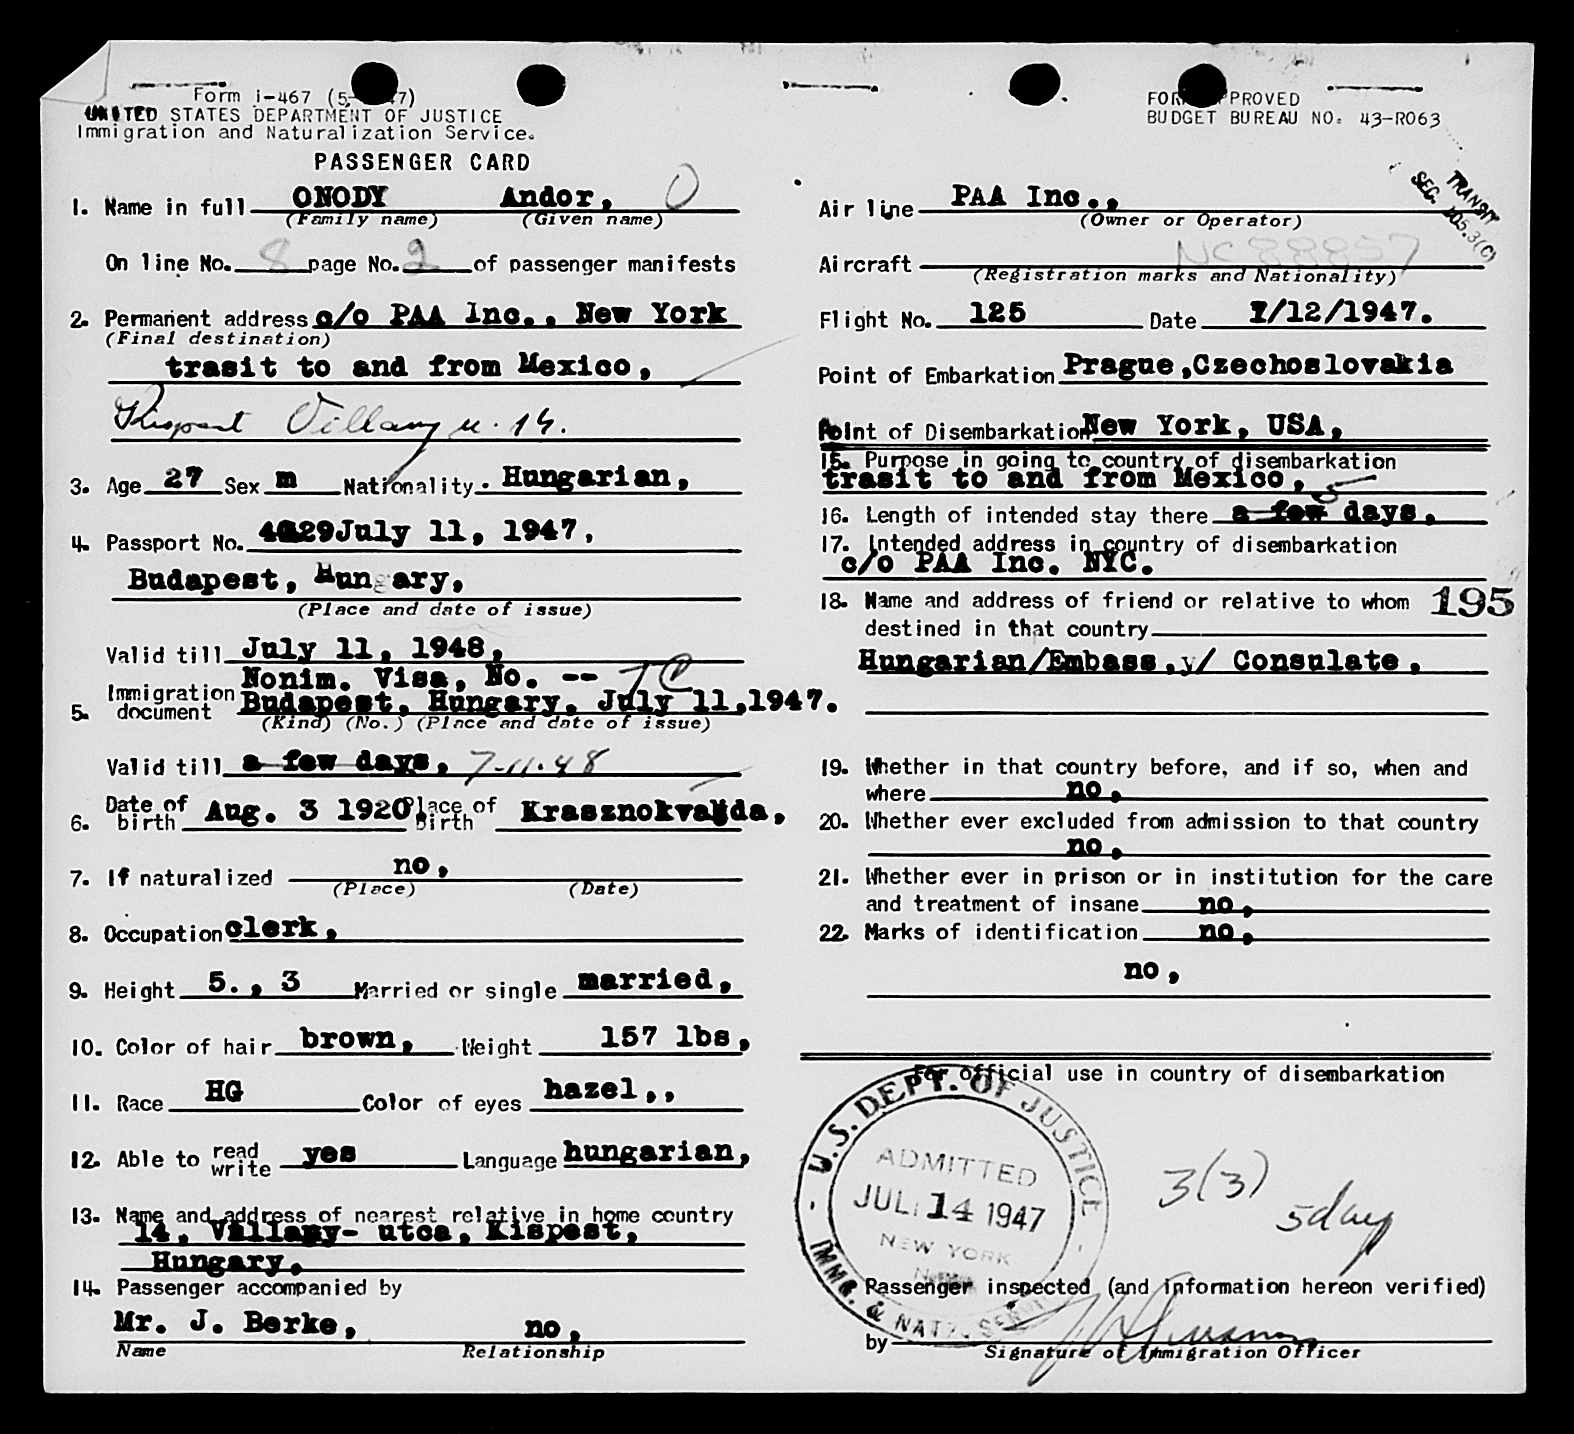 Form I-467 (5- 7)
UNITED STATES DEPARTMENT OF JUSTICE
Immigration and Naturalization Service.
PASSENGER CARD
1. Name in full ONODY Andor, O
(Family name) (Given name)
On line No. 8 page No. 2 of passenger manifests
2. Permanent address c/o PAA Inc., New York
(Final destination)
trasit to and from Mexico,
Kispest Villany u. 14.
3. Age 27 Sex m Nationality. Hungarian,
4. Passport No. 4029 July 11, 1947.
Budapest, Hungary,
(Place and date of issue)
Valid till July 11, 1948,
Nonim. Visa, No. --
5. Immigration document Budapest, Hungary, July 11,1947.
(Kind) (No.) (Place and date of issue)
Valid till a few days, 7-11-48
6. Date of birth Aug. 3 1920, Place of birth Krasznokvajda,
7. If naturalized no,
(Place) (Date)
8. Occupation clerk,
9. Height 5., 3 Married or single married,
10. Color of hair brown, Weight 157 lbs,
11. Race HG Color of eyes hazel,,
12. Able to read write yes Language hungarian,
13. Name and address of nearest relative in home country
14, Vallany- utca, Kispest,
Hungary,
14. Passenger accompanied by
Mr. J. Berke, no,
Name Relationship
FORM APPROVED
BUDGET BUREAU NO. 43-R063
TRANSIT
SEC. 105.3(C)
Air line PAA Inc.,
(Owner or Operator)
Aircraft NC88857
(Registration marks and Nationality)
Flight No. 125 Date 7/12/1947.
Point of Embarkation Prague,Czechoslovakia
Point of Disembarkation New York, USA,
15. Purpose in going to country of disembarkation
trasit to and from Mexico,
16. Length of intended stay there a few days, 5
17. Intended address in country of disembarkation
c/o PAA Inc. NYC.
18. Name and address of friend or relative to whom 195
destined in that country
Hungarian/Embass.y/ Consulate,
19. Whether in that country before, and if so, when and
where no,
20. Whether ever excluded from admission to that country
no,
21. Whether ever in prison or in institution for the care
and treatment of insane no,
22. Marks of identification no,
no,
For official use in country of disembarkation
U.S. DEPT. OF JUSTICE
ADMITTED
JUL 14 1947
NEW YORK
IMMG. & NATZ. SERVICE
3(3)
5 day
Passenger inspected (and information hereon verified)
by
Signature of Immigration Officer